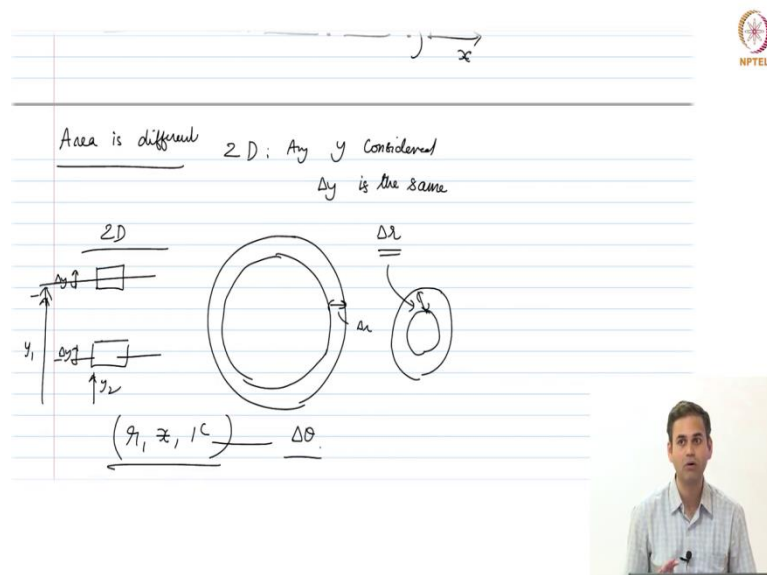 x
NPTEL
Area is different
2D: Any y Considered
Δy is the same
2D
Δr
Δy
Δr
y₁
Δy
y₂
(r, x, 1ᶜ) Δθ.